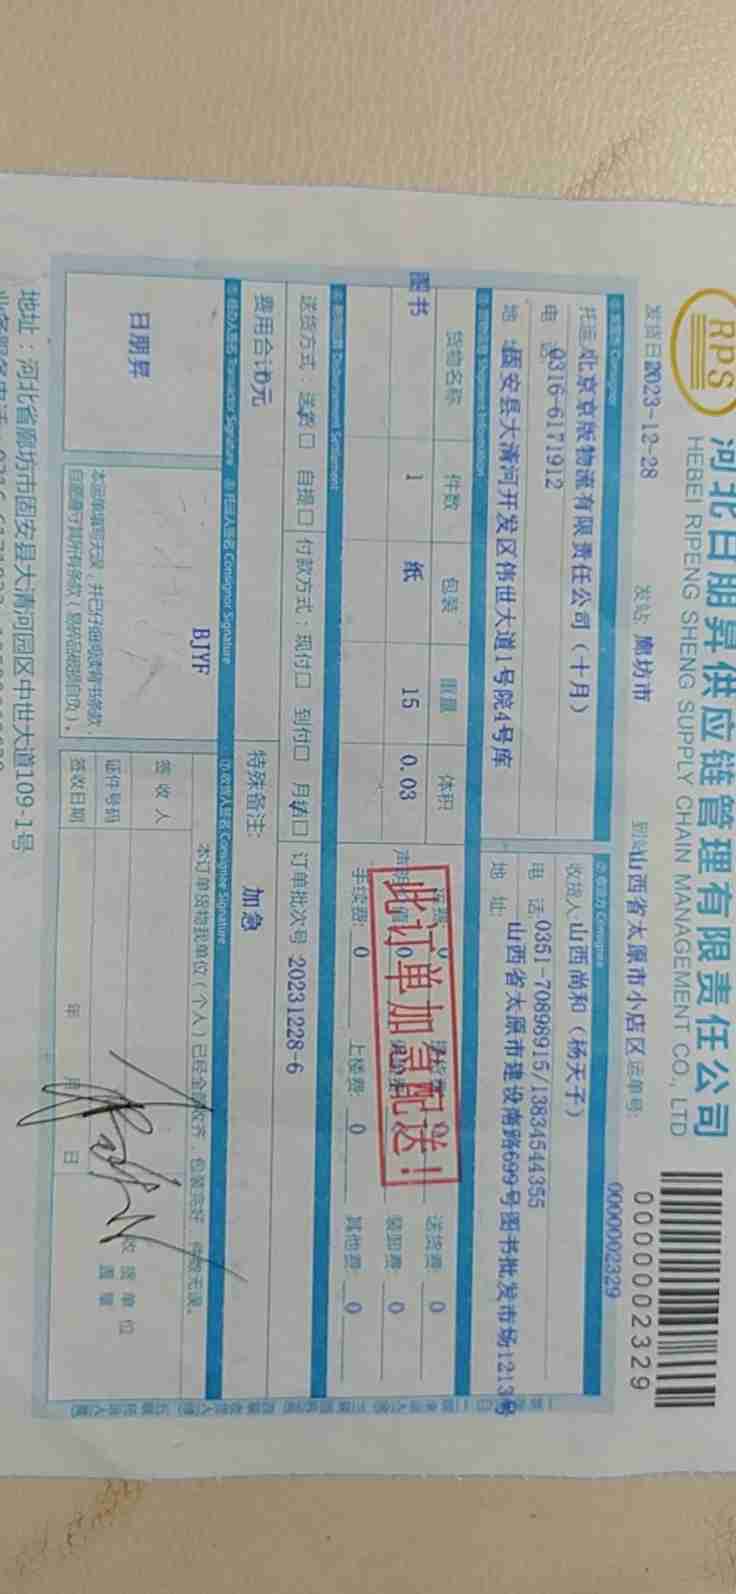 RPS
河北日朋昇供应链管理有限责任公司
HEBEI RIPENG SHENG SUPPLY CHAIN MANAGEMENT CO., LTD
0000002329
发货日2023-12-28 发站: 廊坊市 到站山西省太原市小店区 运单号: 0000002329
托运 北京京版物流有限责任公司(十月)
电 话 0316-6171912
地 址 固安县大清河开发区伟世大道1号院4号库
收货人 山西尚和(杨天子)
电 话 0351-70898915/13834544355
地 址: 山西省太原市建设南路699号图书批发市场1213号
货物名称 件数 包装 重量 体积
图书 1 纸 15 0.03
送货费: 0
声明 值 0 装卸费: 0
手续费: 0 上楼费: 0 其他费: 0
此订单加急配送!
送货方式: 送货 自提 付款方式: 现付 到付 月结 订单批次号 20231228-6
费用合计0元 特殊备注: 加急
Transactor Signature
托运人签名 Consignor Signature
收货人签名 Consignee Signature
日朋昇
BJYF
本运单填写无误,并已仔细阅读背书条款,
自愿遵守其所有条款(易碎品破损自负)。
本订单货物我单位(个人)已经全部收齐,包装完好 货物无误。
签 收 人
证件号码
签收日期 年 月 日
收 货 单 位
盖 章
地址:河北省廊坊市固安县大清河园区中世大道109-1号